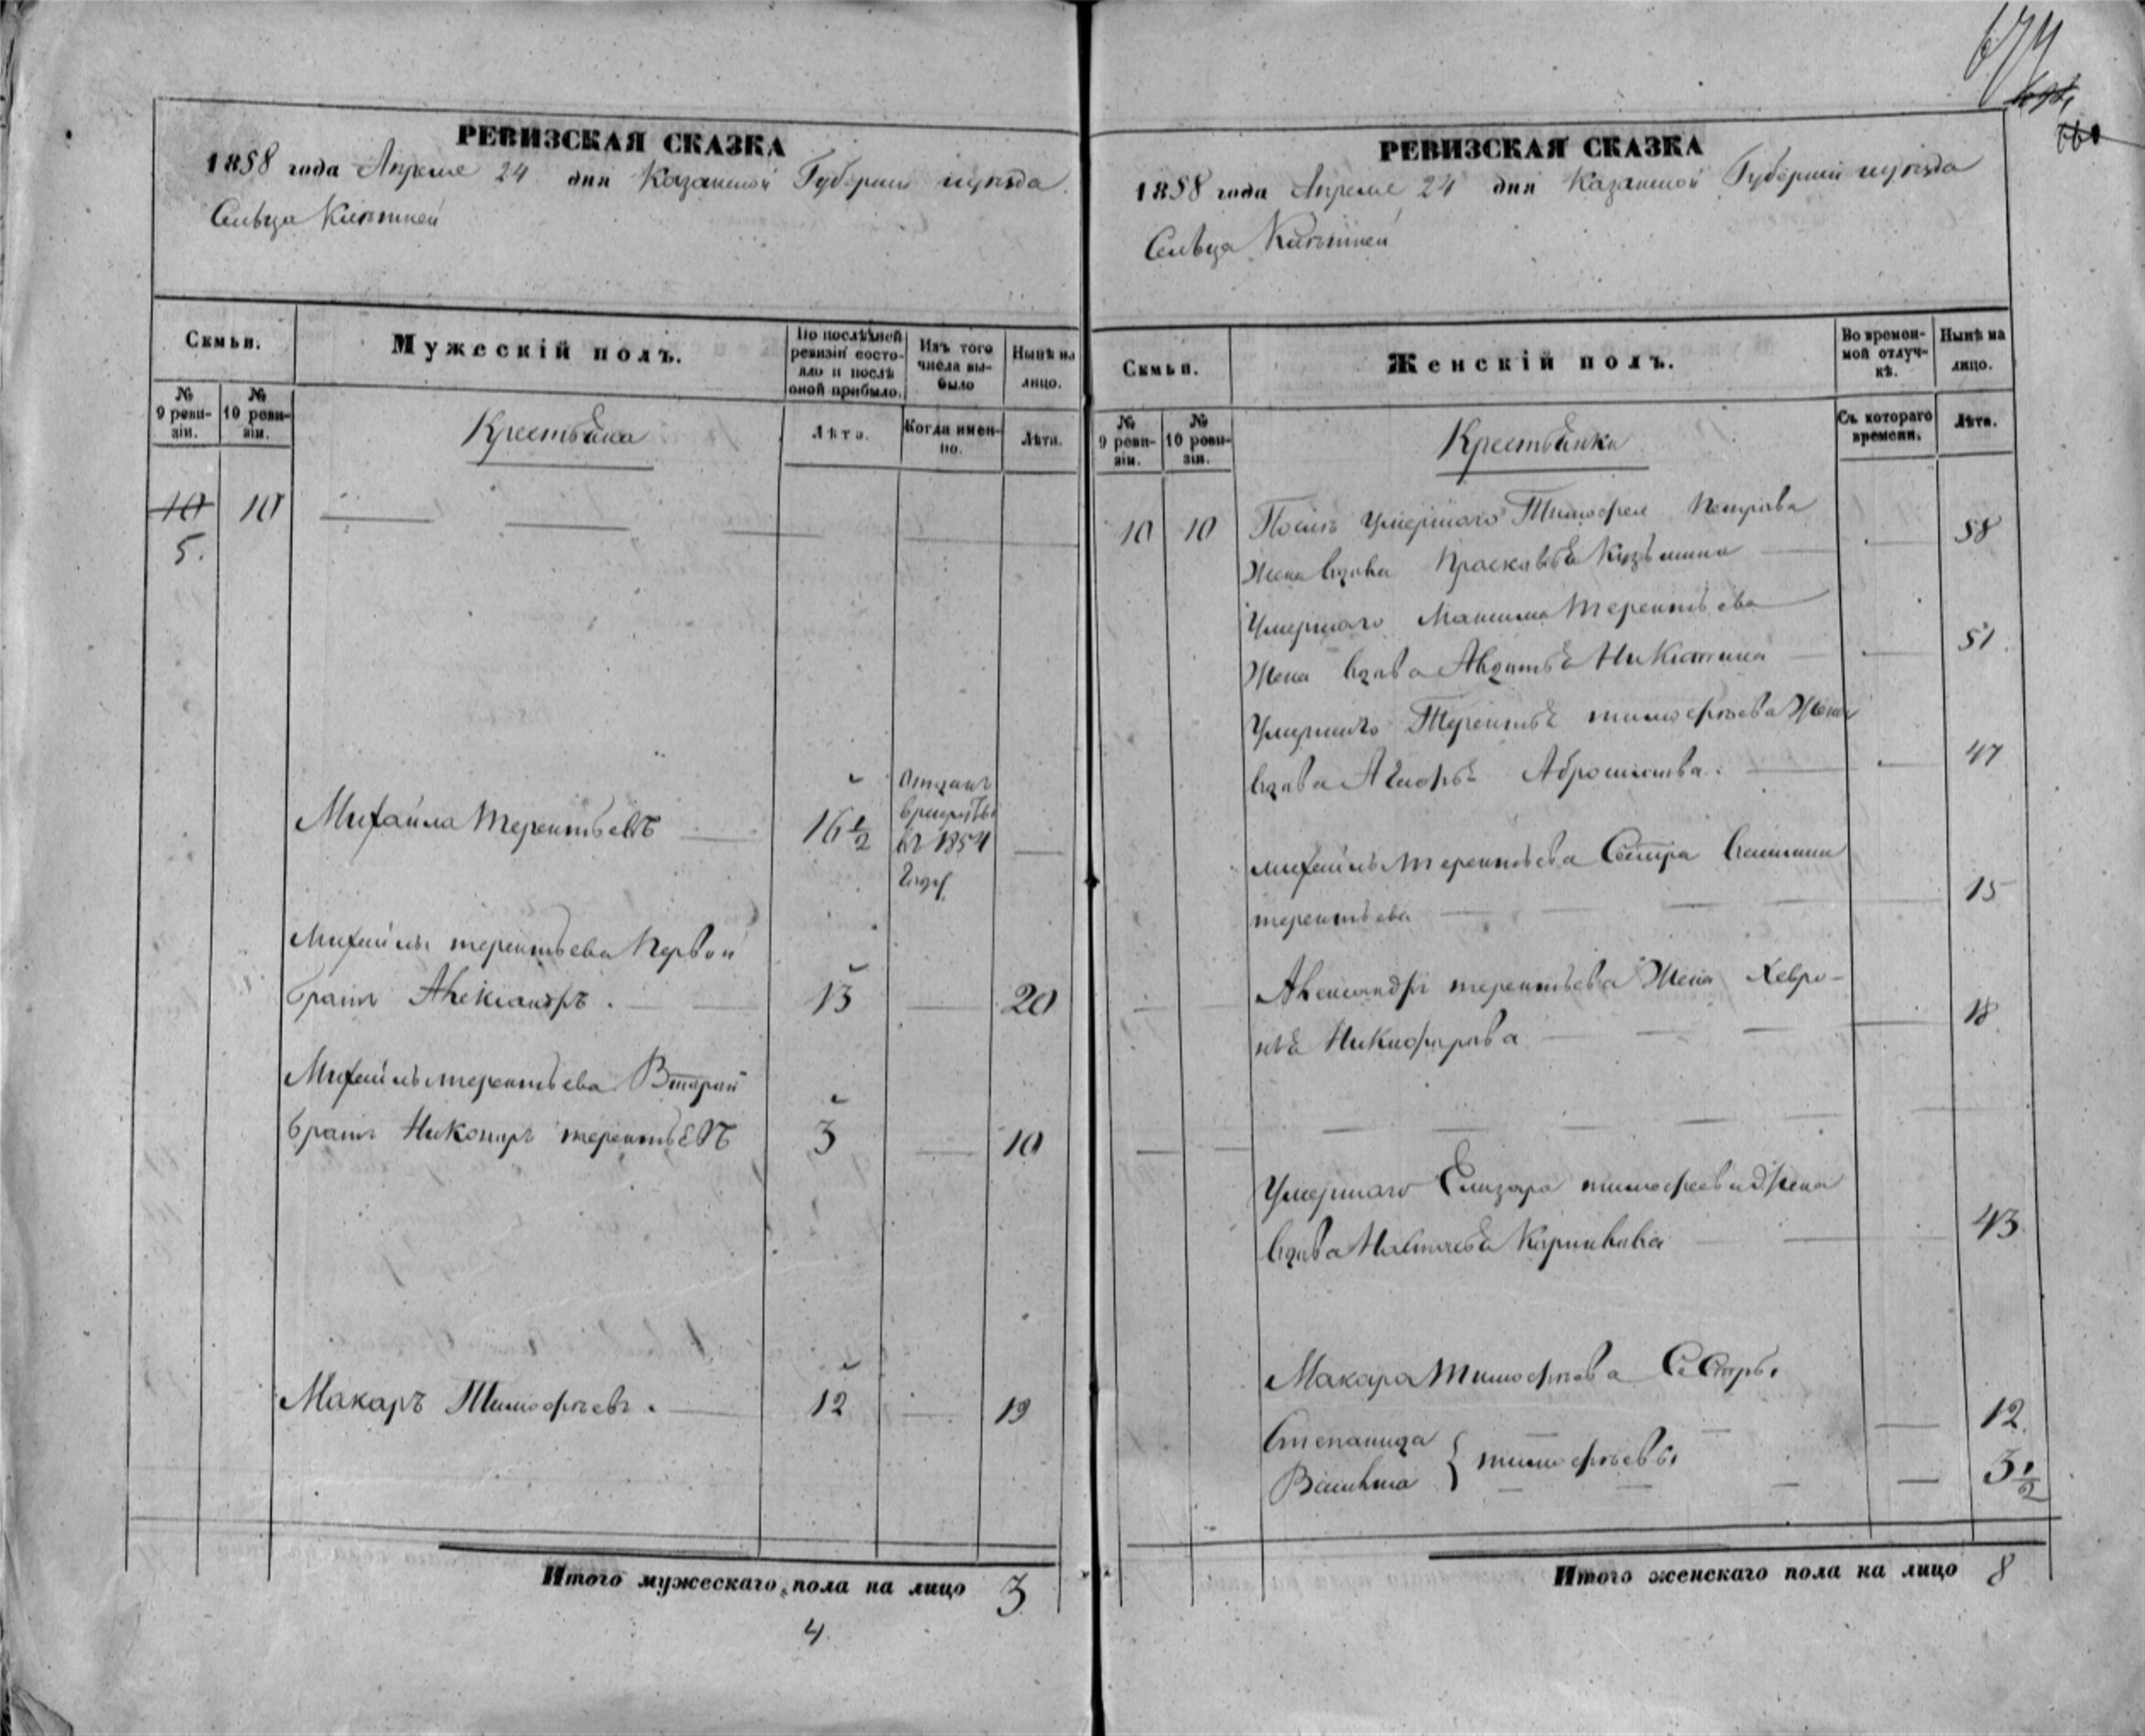 674
РЕВИЗСКАЯ СКАЗКА
1858 года Апреля 24 дня Казанской Губернии и уѣзда
Сельца
Семьи.
Мужескій полъ.
По послѣдней ревизіи состояло и послѣ оной прибыло.
Изъ того числа выбыло
Нынѣ на лицо.
№ 9 ревизіи.
№ 10 ревизіи.
Крестьяна
Лѣта.
Когда именно.
Лѣта.
10 10
5.
Михаила терентьевъ 16 1/2
Отданъ
в рекруты
въ 1854
году
Михаилы терентьева Первой
братъ Александръ. 13 20
Михаилы терентьева Второй
братъ Никоноръ терентьевъ 3 10
Макаръ Тимофѣевъ. 12 19
Итого мужескаго пола на лицо 3
4
РЕВИЗСКАЯ СКАЗКА
1858 года Апреля 24 дня Казанской Губернии и уѣзда
Сельца
Семьи.
Женскій полъ.
Во временной отлучкѣ.
Нынѣ на лицо.
№ 9 ревизіи.
№ 10 ревизіи.
Крестьянки
Съ котораго времени.
Лѣта.
10 10 Послѣ умершаго Тимофея Петрова
Жена вдова Прасковья Кузьмина 58
Умершаго Максима терентьева
Жена вдова Авдотья Никитина 51.
Умершаго Терентья тимофѣева Жена
вдова 47
Михаилы терентьева Сестра
терентьева 15
Александры терентьева Жена Хевро-
нья Никифорова 18
Умершаго Елизара тимофеева Жена
вдова Настасья 43
Макара тимофѣева Сестры
Степанида 12
тимофѣевы
3 1/2
Итого женскаго пола на лицо 8